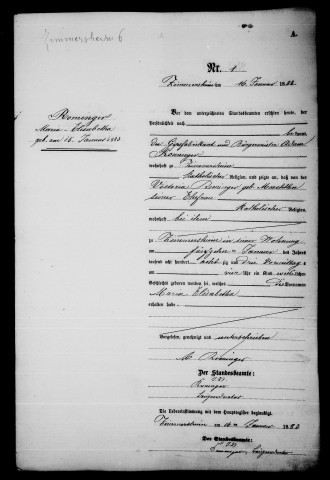 Zimmersheim 6
A.
Nr. 1
Rominger
Maria Elisabetha
geb. am 15. Januar 1883
Zimmersheim am 16. Januar 1883
Vor dem unterzeichneten Standesbeamten erschien heute, der
Persönlichkeit nach
kannt,
der Gypsfabrikant und Bürgermeister
Rominger
wohnhaft in Zimmersheim
katholischer Religion, und zeigte an, daß von der
Victoria Rominger geb.
seiner Ehefrau
katholischer Religion,
wohnhaft bei ihm
zu Zimmersheim in seiner Wohnung
am fünfzehnten Januar des Jahres
tausend acht hundert achtzig und drei Vormittags
um vier Uhr ein Kind weiblichen
Geschlechts geboren worden sei, welches die Vornamen
Maria Elisabetha
erhalten habe
Vorgelesen, genehmigt und unterschrieben
Rominger
Der Standesbeamte:
Rominger
Die Uebereinstimmung mit dem Hauptregister beglaubigt
Zimmersheim am 16ten Januar 1883
Der Standesbeamte: